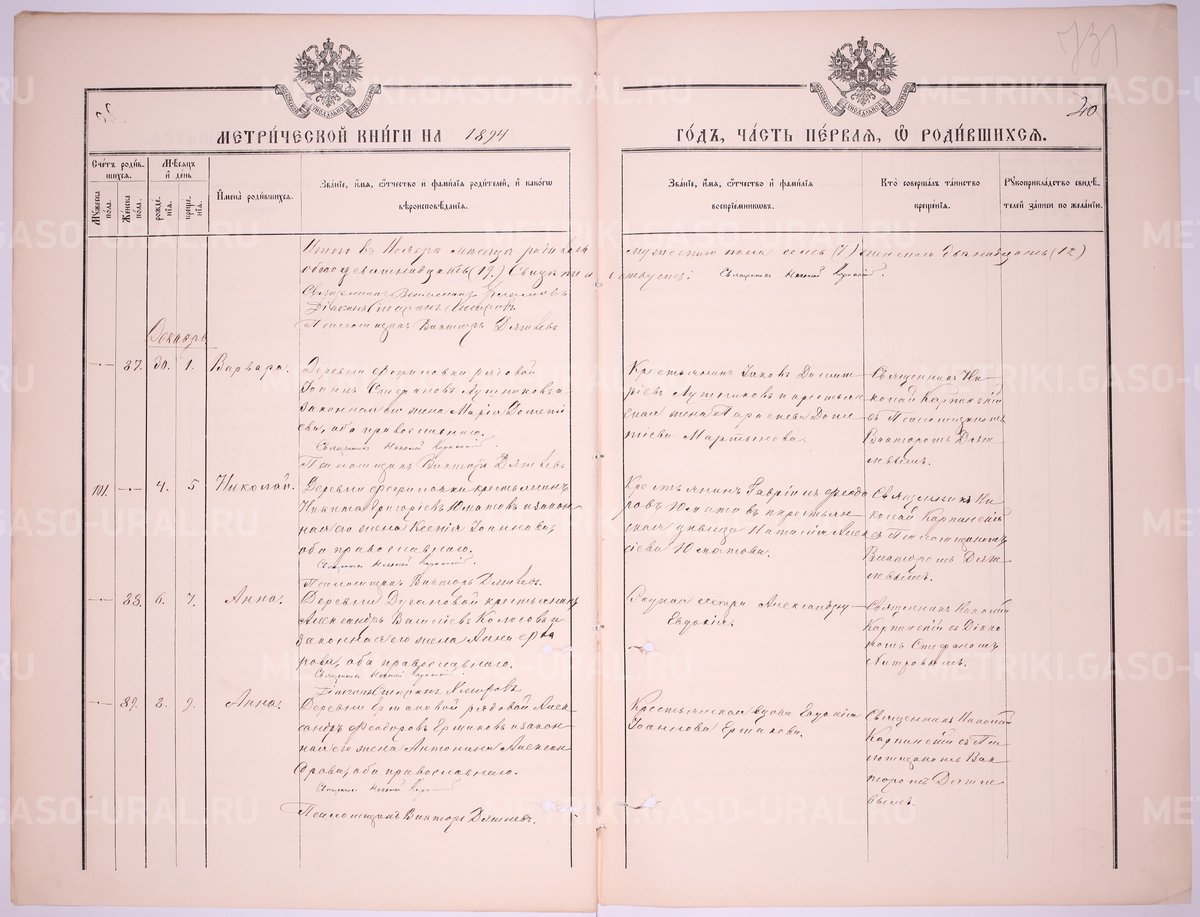 731
40
МЕТРИ́ЧЕСКОЙ КНИ́ГИ НА 1894
ГО́ДЪ, ЧА́СТЬ ПЕ́РВАЯ, Ѿ РОДИ́ВШИХСЯ.
Сче́тъ роди́в-
шихся.
Мѣсяцъ
и день
Му́жеска
пола.
Же́нска
пола.
рожде-
нія.
креще-
нія.
Имена́ роди́вшихся.
Зва́ніе, имя, о́тчество и фами́лія родителей, и како́гѡ
вѣроисповѣ́данія.
Зва́ніе, имя, о́тчество и фами́лія
воспріе́мниковъ.
Кто̀ соверша́лъ та́инство
креще́нія.
Рукоприкла́дство свидѣ́-
телей за́писи по жела́нію.
Итого въ Ноябрѣ мѣсяцѣ родилось
мужескаго пола семь (7) женскаго двѣнадцать (12)
обоего девятнадцать (19.)
Священникъ Николай Карпинскій.
Псаломщикъ Викторъ
Декабрь
— 87. 30. 1. Варвара.
Деревни рядовой
Іоаннъ Стефановъ Лутниковъ и
законная его жена Марія
ева, оба православнаго.
Священникъ Николай Карпинскій.
Псаломщикъ Викторъ
Крестьянинъ Іаковъ Димит-
ріевъ Лутниковъ и крестьян-
ская жена Параскева
Мартынова.
Священникъ Ни-
колай Карпинскій
съ Псаломщикомъ
Викторомъ
101. — 4. 5 Николай.
Деревни крестьянинъ
Никита Григоріевъ Юматовъ и закон-
ная его жена Ксенія Іоаннова,
оба православнаго.
Священникъ Николай Карпинскій.
Псаломщикъ Викторъ
Крестьянинъ Гавріилъ Ѳеодо-
ровъ Юматовъ и крестьян-
ская дѣвица Наталія Алек-
сіева Юматова.
Священникъ Ни-
колай Карпинскій
съ Псаломщикомъ
Викторомъ
— 88. 6. 7. Анна.
Деревни крестьянинъ
Александръ Василіевъ Колосовъ и
законная его жена Анна
рова, оба православнаго.
Священникъ Николай Карпинскій.
Діаконъ Стефанъ
Родная сестра Александру
Евдокія.
Священникъ Николай
Карпинскій съ Діако-
номъ Стефаномъ
— 89. 8. 9. Анна.
Деревни Ермаковой рядовой Алек-
сандръ Ѳеодоровъ Ермаковъ и закон-
ная его жена Антонина Алексан-
дрова, оба православнаго.
Священникъ Николай Карпинскій
Псаломщикъ Викторъ
Крестьянская вдова Евдокія
Іоаннова Ермакова.
Священникъ Николай
Карпинскій съ Пса-
ломщикомъ Вик-
торомъ
METRIKI.GASO-URAL.RU